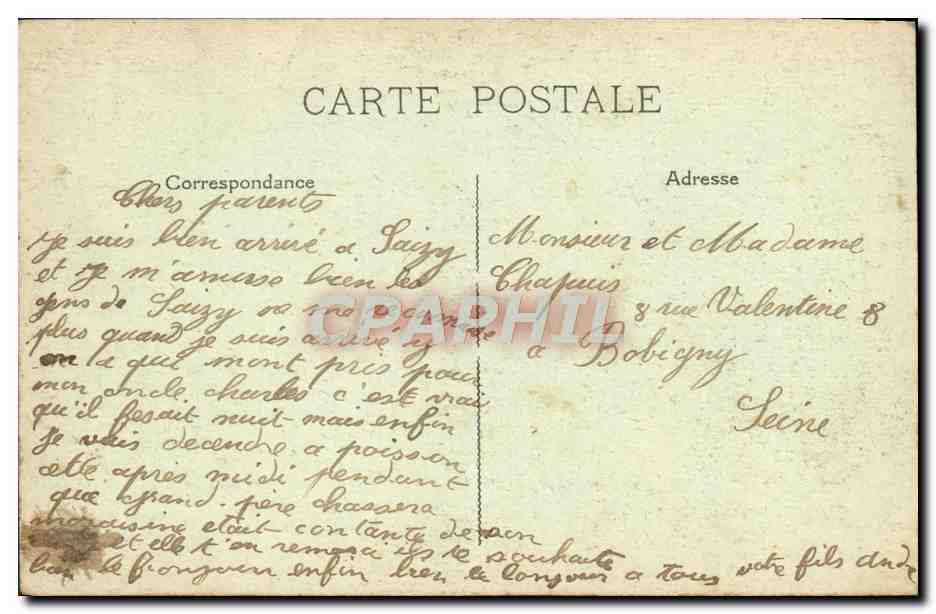 CARTE POSTALE
Correspondance
Chers parents
Je suis bien arrivé a Saizy
et Je m'amuse bien les
gens de Saizy
plus quand je suis arrivé il y
en a qui mont pris pour
mon oncle charles c'est vrai
qu'il fesait nuit mais enfin
Je vais decendre a poisson
cette après midi pendant
que grand père chassera
ma cousine était contante de son
et elle t'en remercie
bien le bonjour a tous votre fils andre
Adresse
Monsieur et Madame
Chapuis
8 rue Valentine 8
a Bobigny
Seine
CPAPHIL